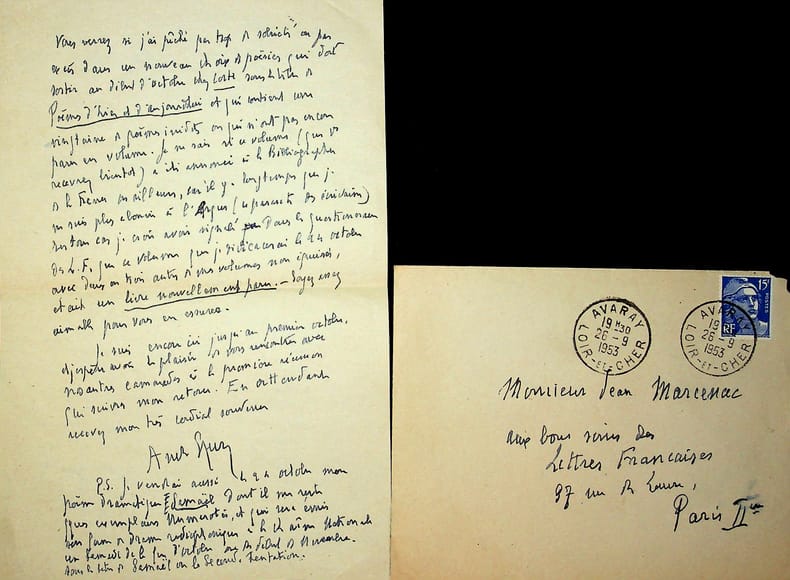 Vous verrez si j'ai péché par trop de sobriété ou par
excès dans un nouveau choix de poésies qui doit
sortir au début d'octobre chez Corti sous le titre de
Poèmes d'hier et d'aujourd'hui et qui contient une
vingtaine de poèmes inédits ou qui n'ont pas encore
paru en volume. Je ne sais si ce volume (que vs
recevrez bientôt) a été annoncé à la Bibliographie
de la France ou ailleurs, car il y a longtemps que je
ne suis plus abonné à l'Argus (ce parasite des écrivains)
En tous cas je crois avoir signalé dans le questionnaire
des L.F. que ce volume que je dédicacerai le 24 octobre
avec deux ou trois autres de mes volumes non épuisés,
était un livre nouvellement paru. – Soyez assez
aimable pour vous en assurer.
Je suis encore ici jusqu'au premier octobre,
j'espère avoir le plaisir de vous rencontrer avec
nos autres camarades à la première réunion
qui suivra mon retour. En attendant
recevez mon très cordial souvenir
P.S. Je vendrai aussi le 24 octobre mon
poème dramatique Samaël dont il me reste
qques exemplaires numérotés, et qui sera émis
sous forme de drame radiophonique à la chaîne Nationale
un samedi de la fin d'octobre ou du début de Novembre
sous le titre de Samaël ou la Seconde Tentation.
15F
POSTES
RF
AVARAY
19H30
26-9
1953
LOIR-ET-CHER
AVARAY
19
26-9
1953
LOIR-ET-CHER
Monsieur Jean Marcenac
aux bons soins des
Lettres Françaises
37 rue du Louvre,
Paris IIème